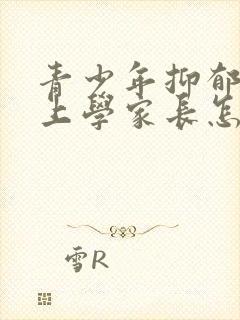 青少年抑郁
上學家長怎
雪R